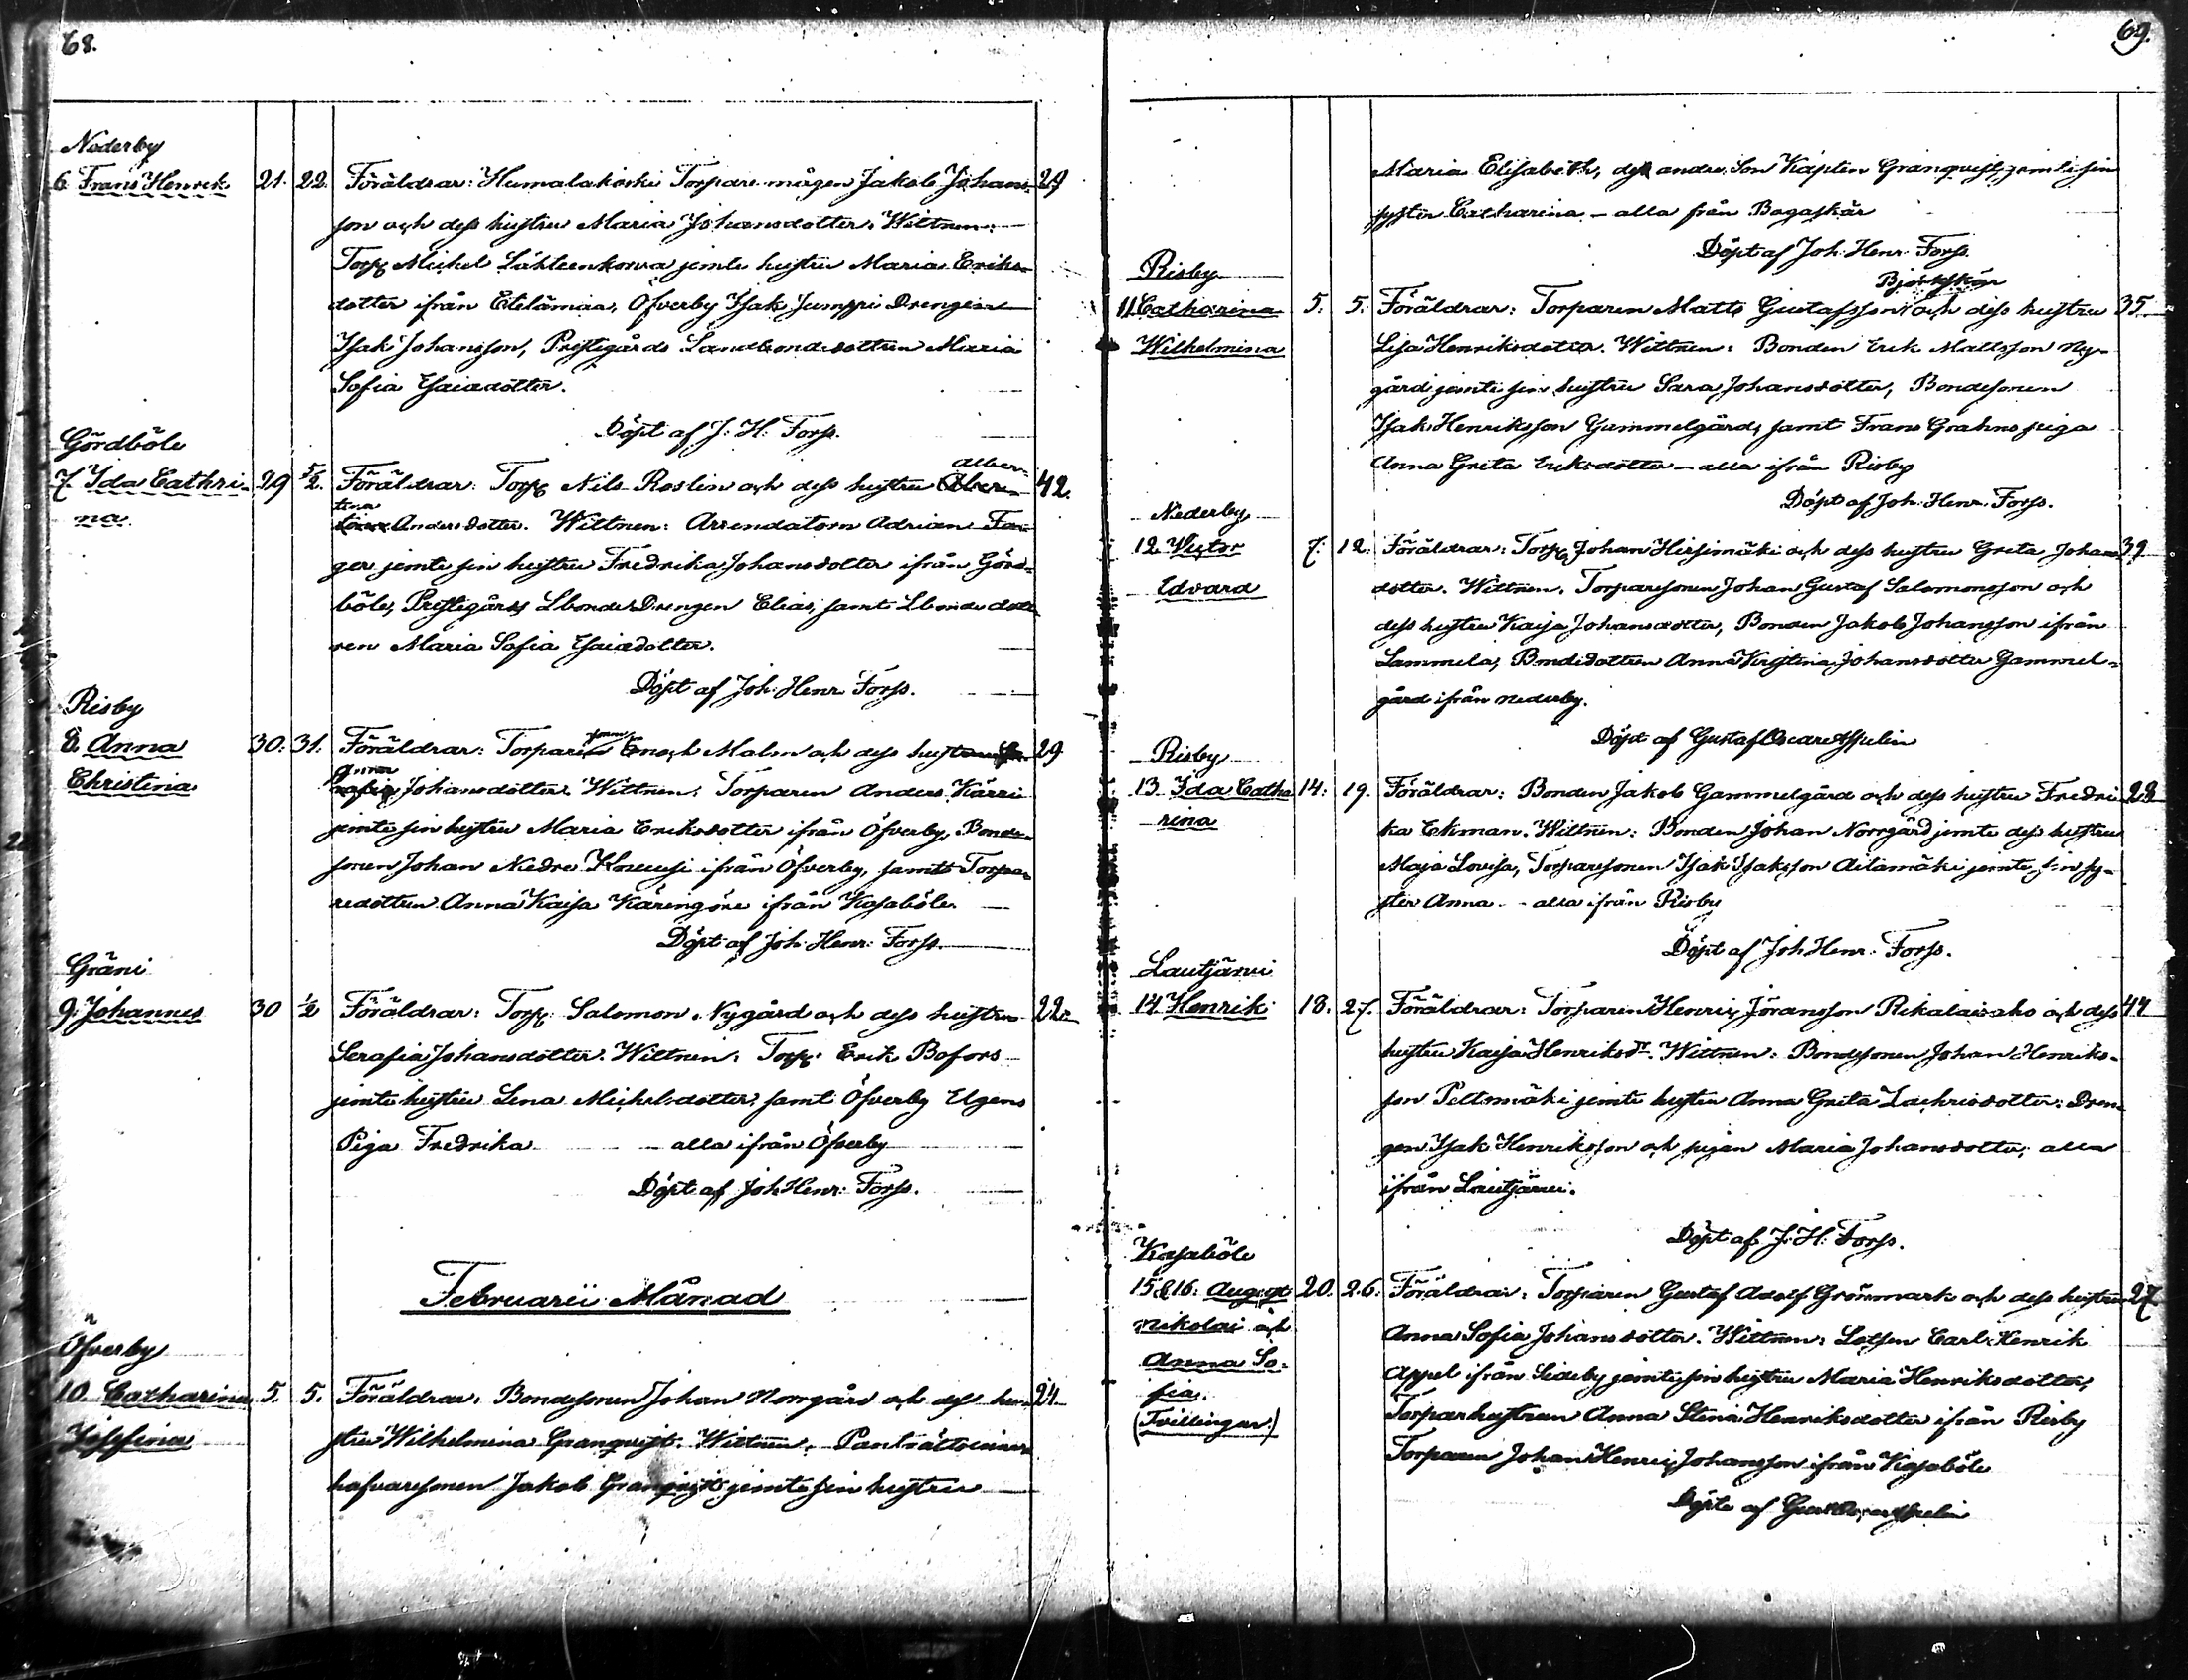 68.
Nederby
6 Frans Henrik. 21. 22. Föräldrar: Humalakoski Torpare mågen Jakob Johans- 29
son och dess hustru Maria Johansdotter. Wittnen:
Torp. Michel Lähteenkorva jemte hustru Maria Eriks-
dotter ifrån Etelämaa, Öfverby Isak Jumppi Drengen
Isak Johansson, Prestegårds Landbondedottren Maria
Sofia Esaiadotter.
Döpt af J. H. Forss.
Gördböle
7. Ida Cathri- 29 5/2. Föräldrar: Torp. Nils Roslin och dess hustru Alber- 42.
na. tina Andersdotter. Wittnen: Arrendatorn Adrian Fa-
ger jemte sin hustru Fredrika Johansdotter ifrån Görd-
böle, Prestegårds Lbonde Drengen Elias, samt Lbonde dott-
ren Maria Sofia Esaiadotter.
Döpt af Joh. Henr. Forss.
Risby
8. Anna 30. 31. Föräldrar: Torparesonen Enoch Malm och dess hustru 29
Christina Anna Johansdotter. Wittnen: Torparen Anders Kärri
jemte sin hustru Maria Eriksdotter ifrån Öfverby, Bonde-
sonen Johan Nedre ifrån Öfverby, samt Torpa-
redottren Anna Kaisa Käringöre ifrån Kasaböle.
Döpt af Joh. Henr. Forss.
Gräni
9. Johannes 30 1/2 Föräldrar: Torp. Salomon Nygård och dess hustru 22.
Serafia Johansdotter. Wittnen: Torp. Erik Bofors
jemte hustru Lena Michelsdotter, samt Öfverby Ugens
Piga Fredrika — alla ifrån Öfverby
Döpt af Joh. Henr. Forss.
Februarii Månad
Öfverby
10. Catharina 5. 5. Föräldrar: Bondesonen Johan Norrgård och dess hu- 24.
Josefina stru Wilhelmina Granqvist. Wittnen:
hafvaresonen Jakob Granqvist jemte sin hustru
69.
Maria Elisabeth, dess andre Son Kapten Granqvist, jemte sin
syster Catharina — alla från Bogaskär
Döpt af Joh. Henr. Forss.
Risby Björkskär
11 Catharina 5. 5. Föräldrar: Torparen Matts Gustafsson och dess hustru 35.
Wilhelmina Lisa Henriksdotter. Wittnen: Bonden Erik Mattsson Ny-
gård jemte sin hustru Sara Johansdotter, Bondesonen
Isak Henriksson Gammelgård, samt Frans Grahns piga
Anna Greta Eriksdotter — alla ifrån Risby
Döpt af Joh. Henr. Forss.
Nederby
12. Victor 7. 12. Föräldrar: Torp. Johan Hirsimäki och dess hustru Greta Johans- 39
Edvard dotter. Wittnen. Torparesonen Johan Gustaf Salomonsson och
dess hustru Kaisa Johansdotter, Bonden Jakob Johansson ifrån
Lammela, Bondedottren Anna Kristina Johansdotter Gammel-
gård ifrån Nederby.
Döpt af Gustaf Oscar Aspelin
Risby
13. Ida Catha 14. 19. Föräldrar: Bonden Jakob Gammelgård och dess hustru Fredri- 28
rina ka Ekman. Wittnen: Bonden Johan Norrgård jemte dess hustru
Maja Lovisa, Torparesonen Isak Isaksson Aitamäki jemte sin sy-
ster Anna. — alla ifrån Risby
Döpt af Joh. Henr. Forss.
Lautjärvi
14 Henrik 18. 27. Föräldrar: Torparen Henric Jöransson Rikalaisaho och dess 44
hustru Kaisa Henriksdr. Wittnen: Bondesonen Johan Henriks-
son Peltomäki jemte hustru Anna Greta Zachrisdotter: Dren-
gen Isak Henriksson och pigan Maria Johansdotter, alla
ifrån Lautjärvi.
Döpt af J. H. Forss.
Kasaböle
15 & 16. August 20. 26. Föräldrar: Torparen Gustaf Adolf Grönmark och dess hustru 27
Nikolai och Anna Sofia Johansdotter. Wittnen: Lotsen Carl Henrik
Anna So- Appel ifrån Sideby jemte sin hustru Maria Henriksdotter,
fia. Torparhustrun Anna Stina Henriksdotter ifrån Risby
(Tvillingar) Torparen Johan Henric Johansson ifrån Kasaböle
Döpte af Gust. Oscar Aspelin